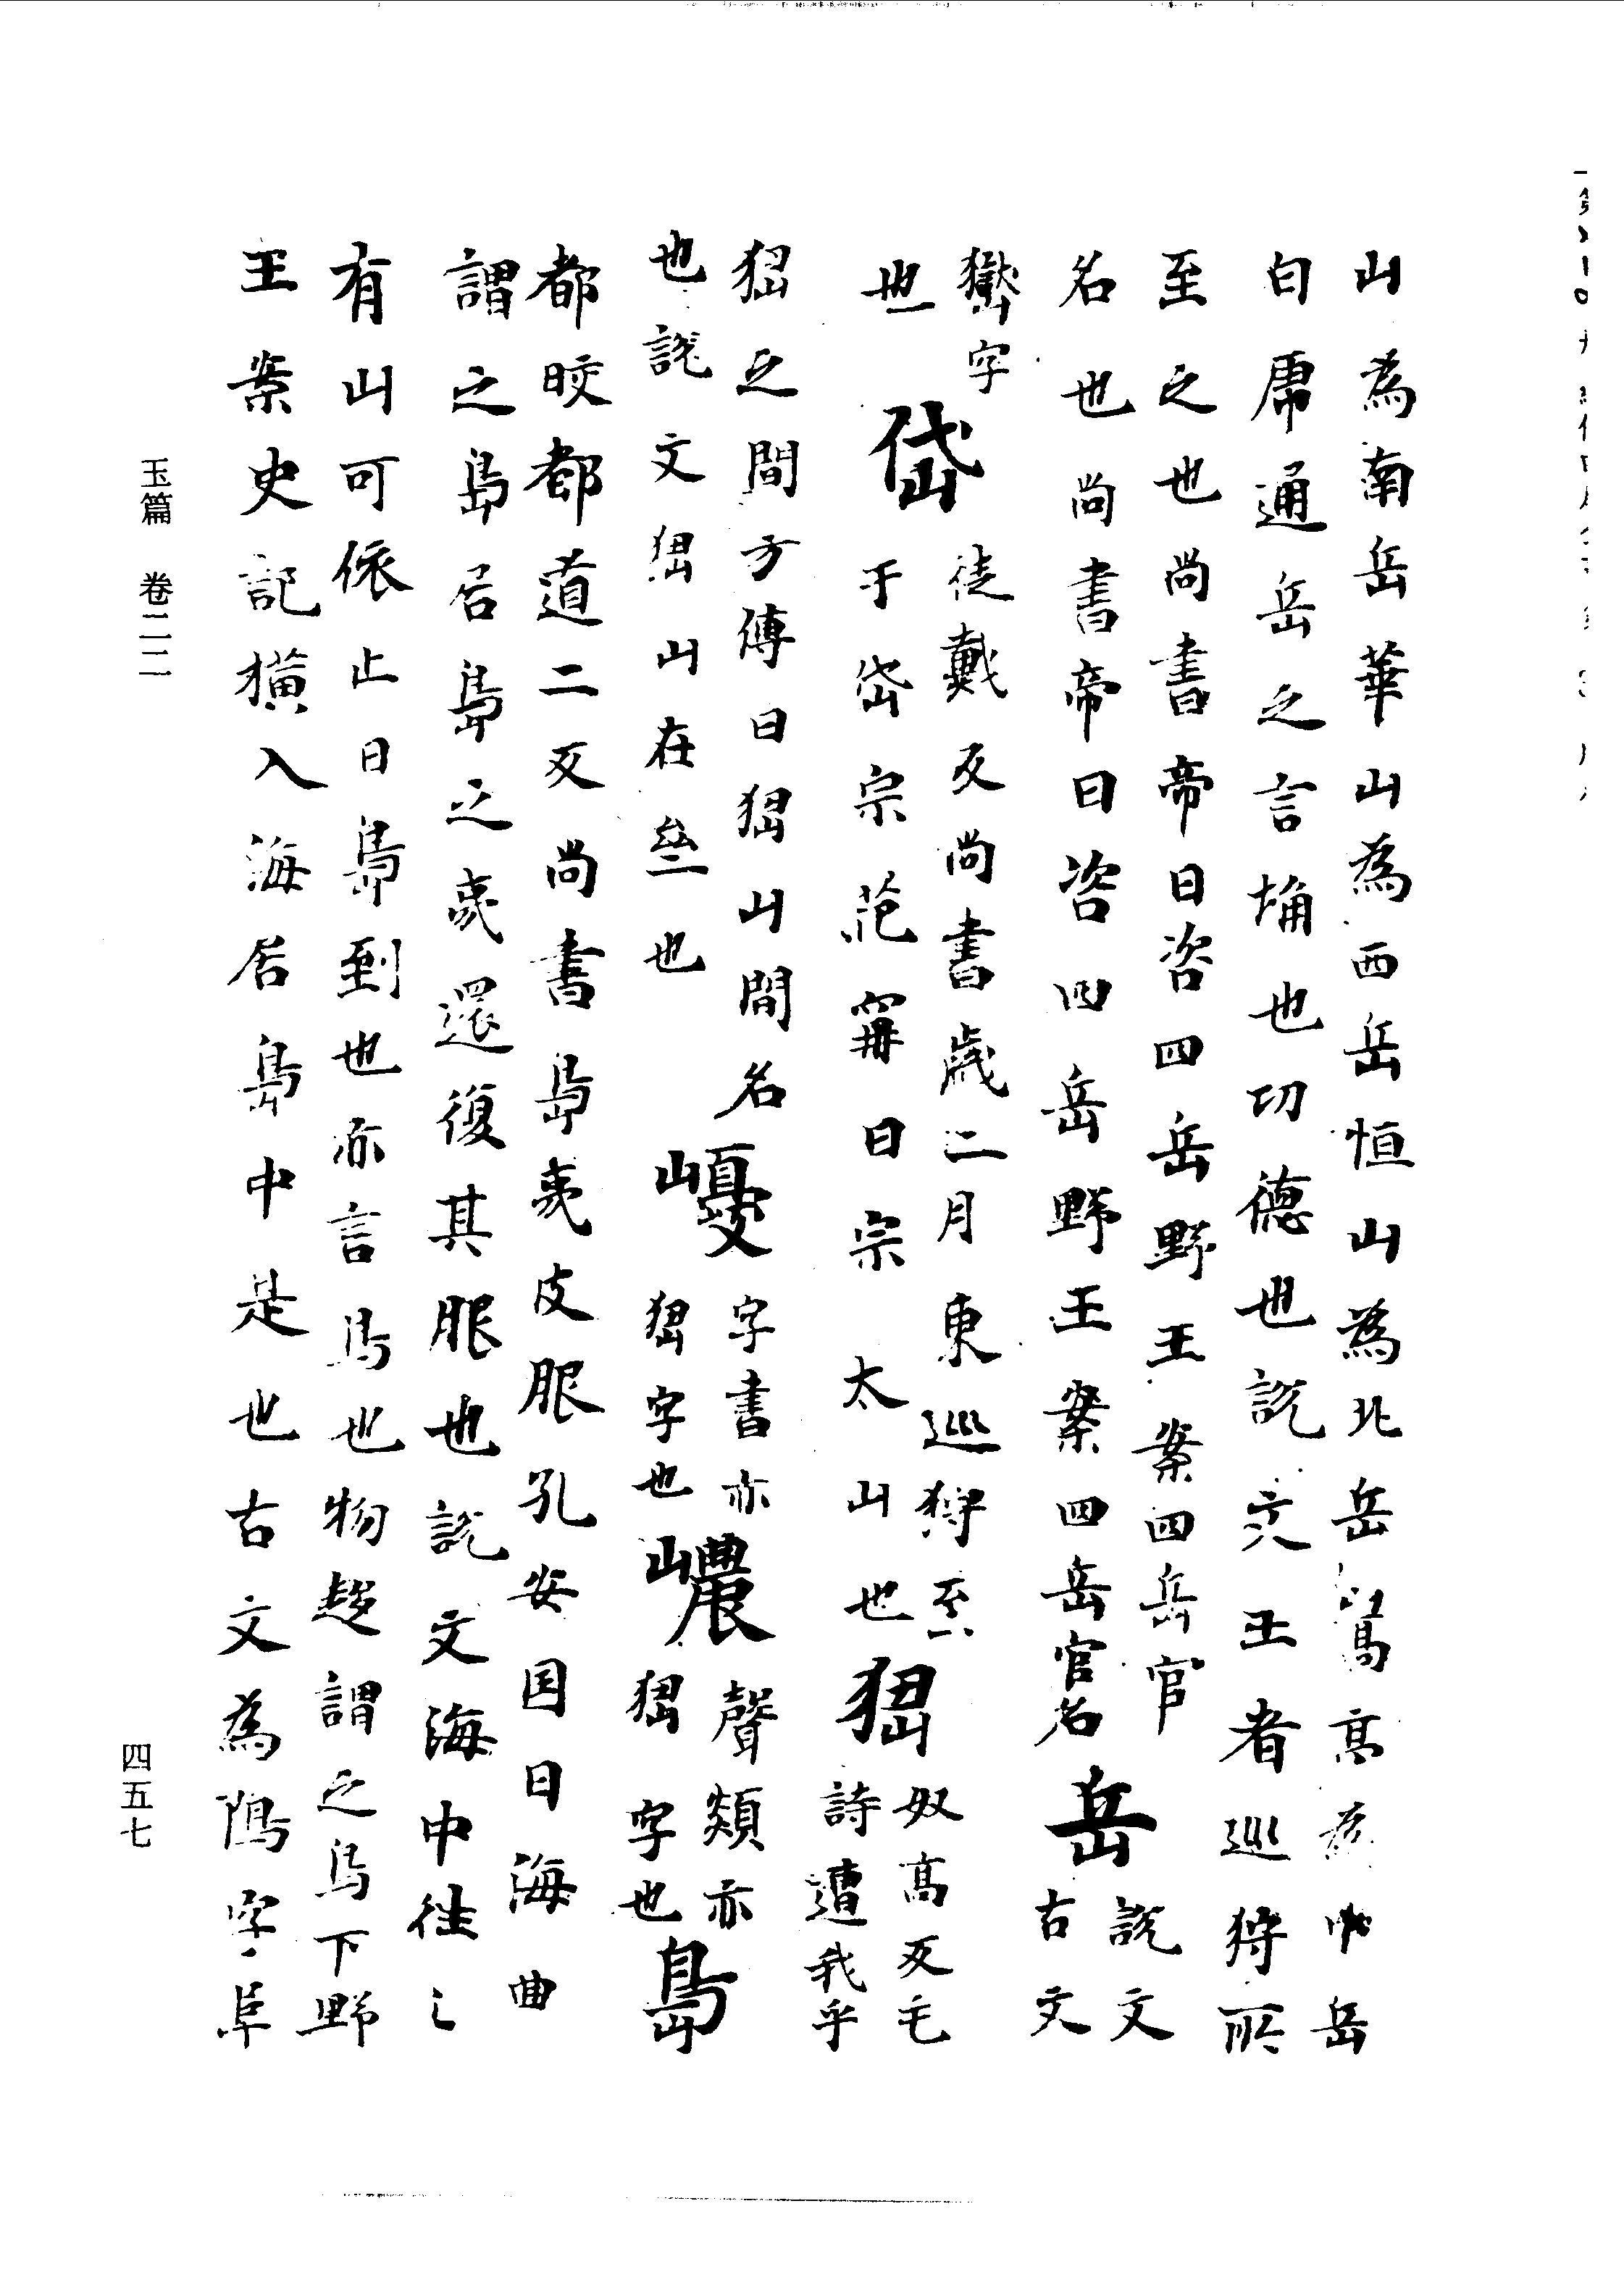 山為南岳華山為西岳恒山為北岳嵩高為中岳
白虎通岳之言埆也功德也説文王者巡狩所
至之也尚書帝曰咨四岳野王案四岳官
名也尚書帝曰咨四岳野王案四岳官名
岳
説文
古文
嶽字
也
岱
徒戴反尚書歳二月東巡狩至
于岱宗范甯曰宗太山也
峱
奴髙反毛
詩遭我乎
峱之間方傳曰峱山間名
也説文峱山在也
巙
字書亦
峱字也
㠢
聲類亦
峱字也
㠀
都晈都道二反尚書㠀夷皮服孔安国曰海曲
謂之㠀居㠀之夷還復其服也説文海中往〻
有山可依止曰㠀到也亦言鳥也物赴謂之鳥下野
王案史記横入海居㠀中是也古文為隝字、阜
玉篇 卷二二
四五七